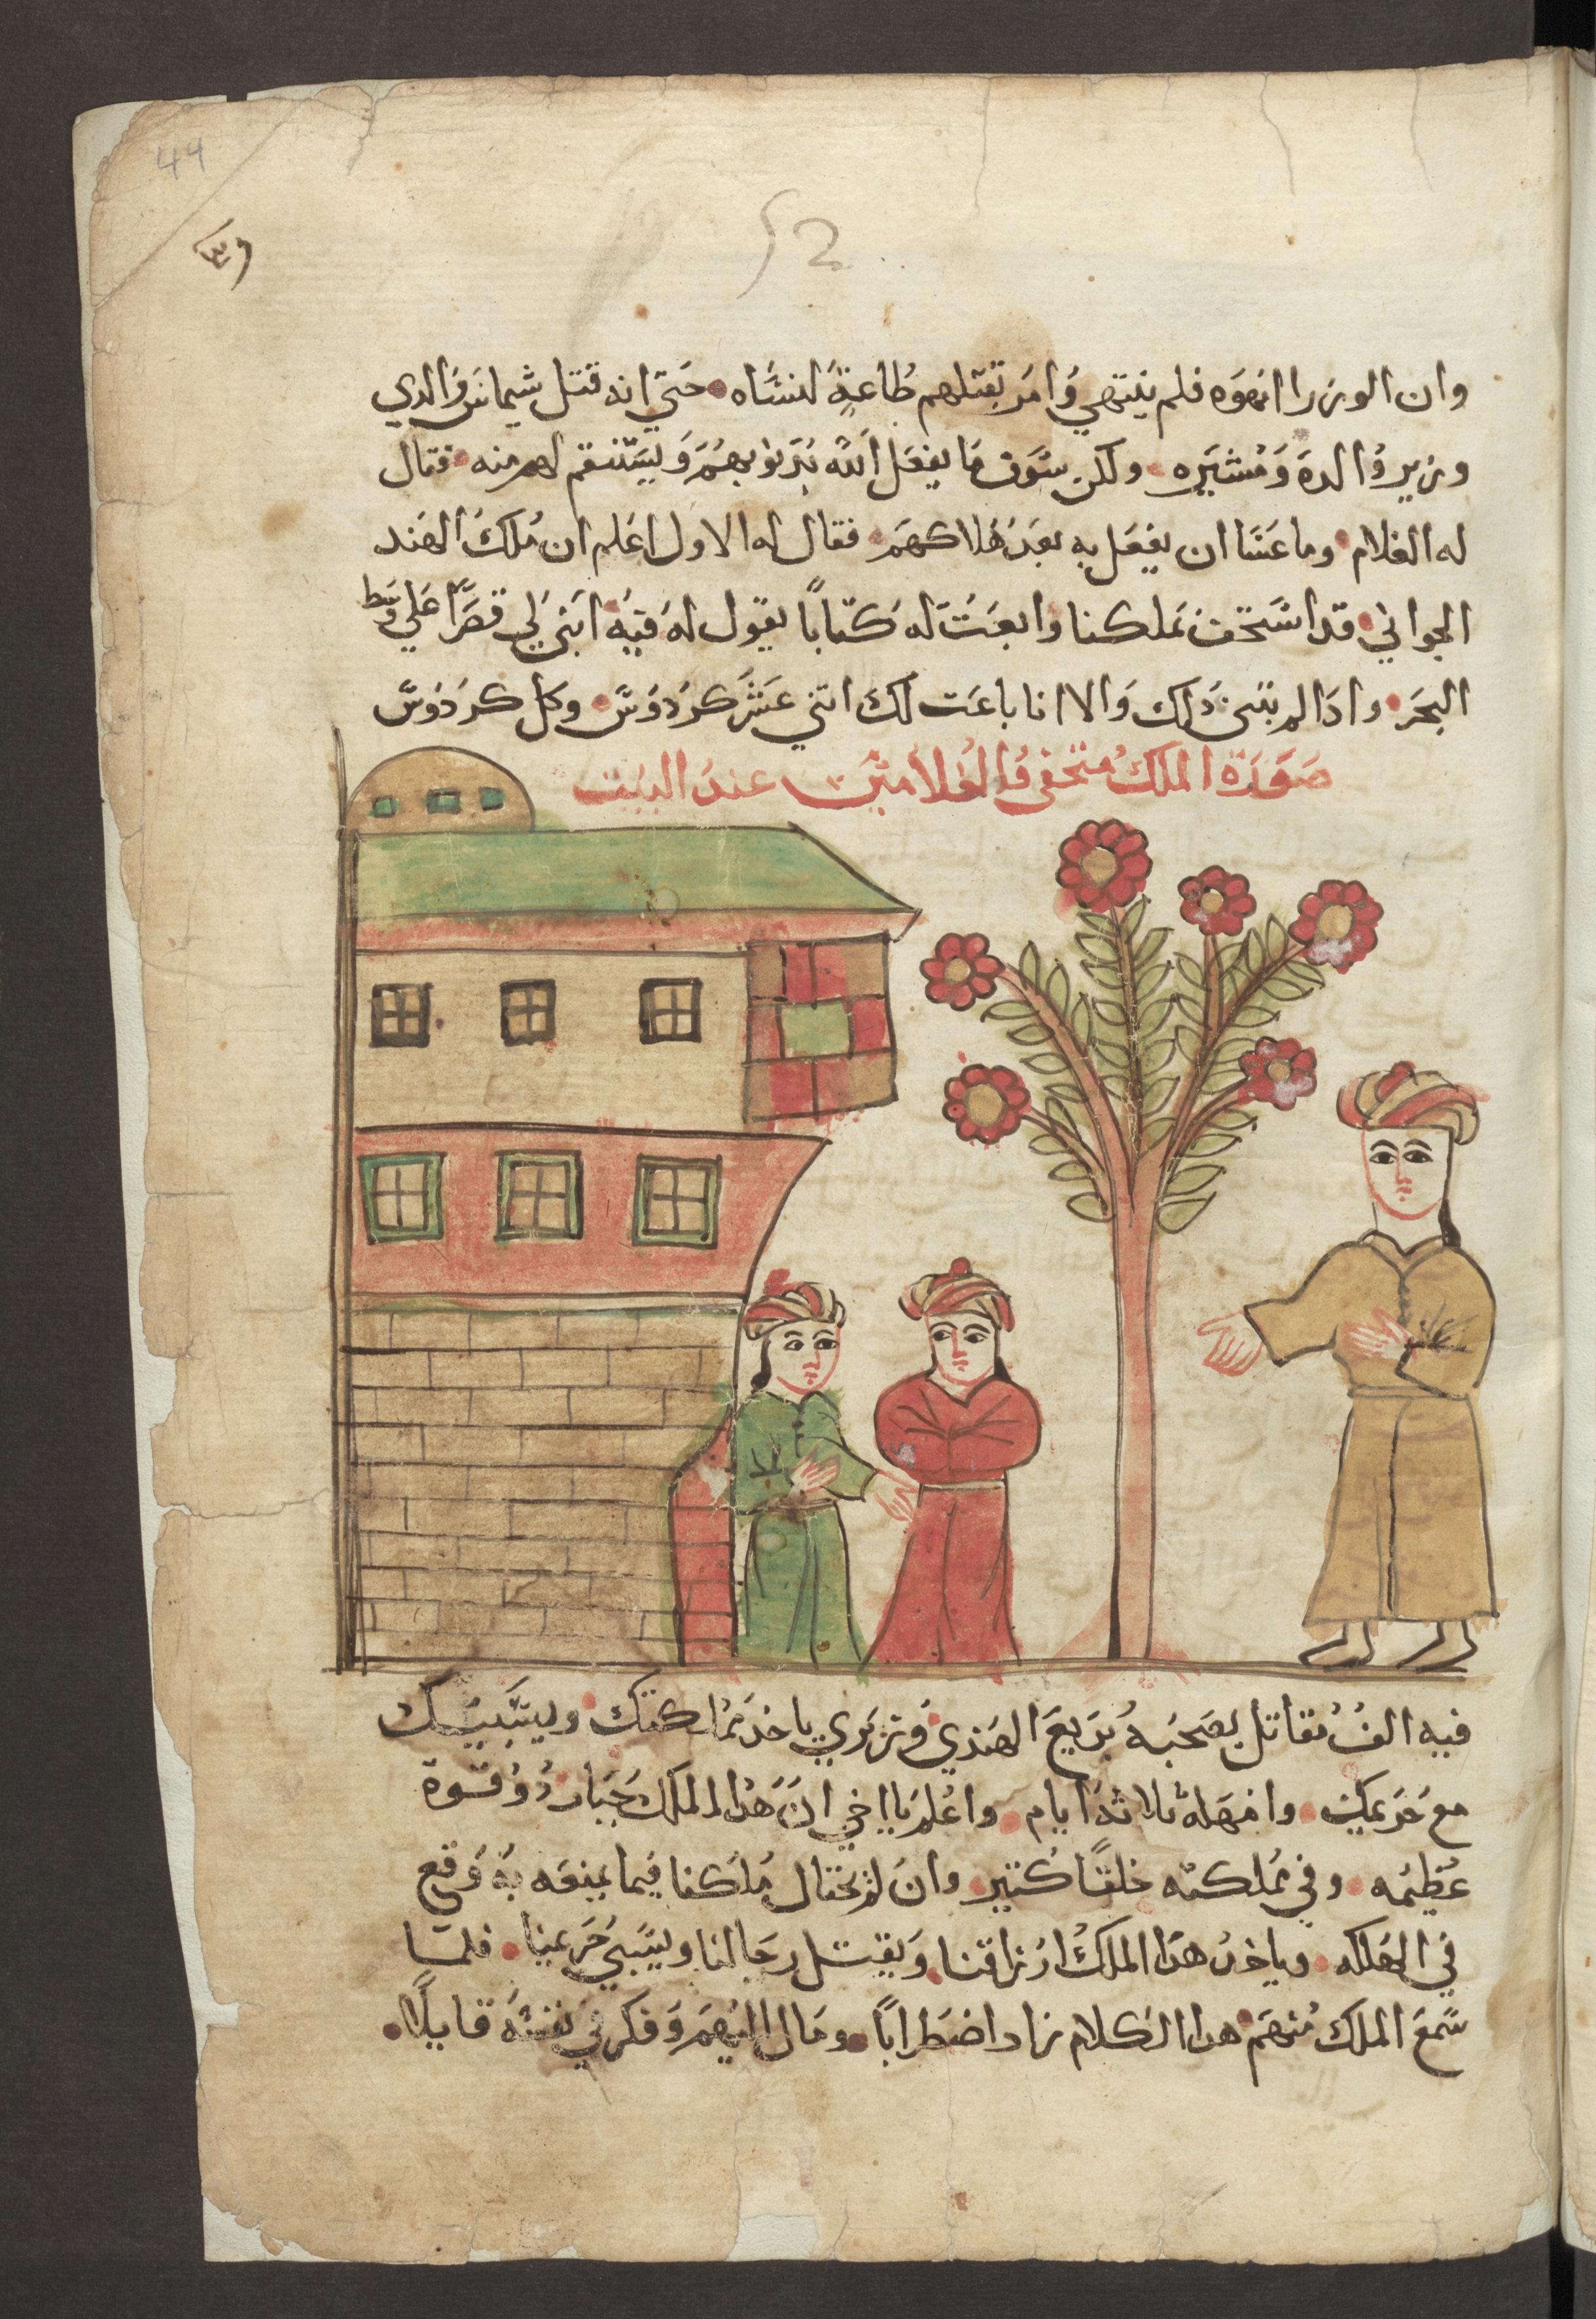 44
52
وان الوزرا انهوه فلم ينتهي وامر بقتلهم طاعةً لنساه حتي انه قتل شيماس والدي
وزير والده ومشيره ولكن سوف ما يفعل الله بهم ويستنقم لهم منه فقال
له الغلام وما عسا ان يفعل به بعد هلاكهم فقال له الاول اعلم ان ملك الهند
الجواني قد استخف بملكنا وابعت له كتاباً يقول له فيه ابني لي قصراً علي وسط
البحر وادا لم تبني دلك والا انا باعت لك اتني عشر كردوس وكل كردوس
صورة الملك متخفي والغلامين عند البيت
فيه الف مقاتل بصحبة بديع الهندي وزيري ياخد مملكتك ويسبيك
مع حريمك وامهله تلاتة ايام واعلم يا اخي ان هدا الملك جبار دو قوة
عظيمه وفي مملكته خلقاً كتير وان لم يحتال ملكنا فيما يمنعه به وقع
في الهلكه وياخد هدا الملك ارزاقنا ويقتل رجالنا ويسبي حريمنا فلما
سمع الملك منهم هدا الكلام زاد اضطراباً ومال اليهم وفكر في نفسه قايلاً